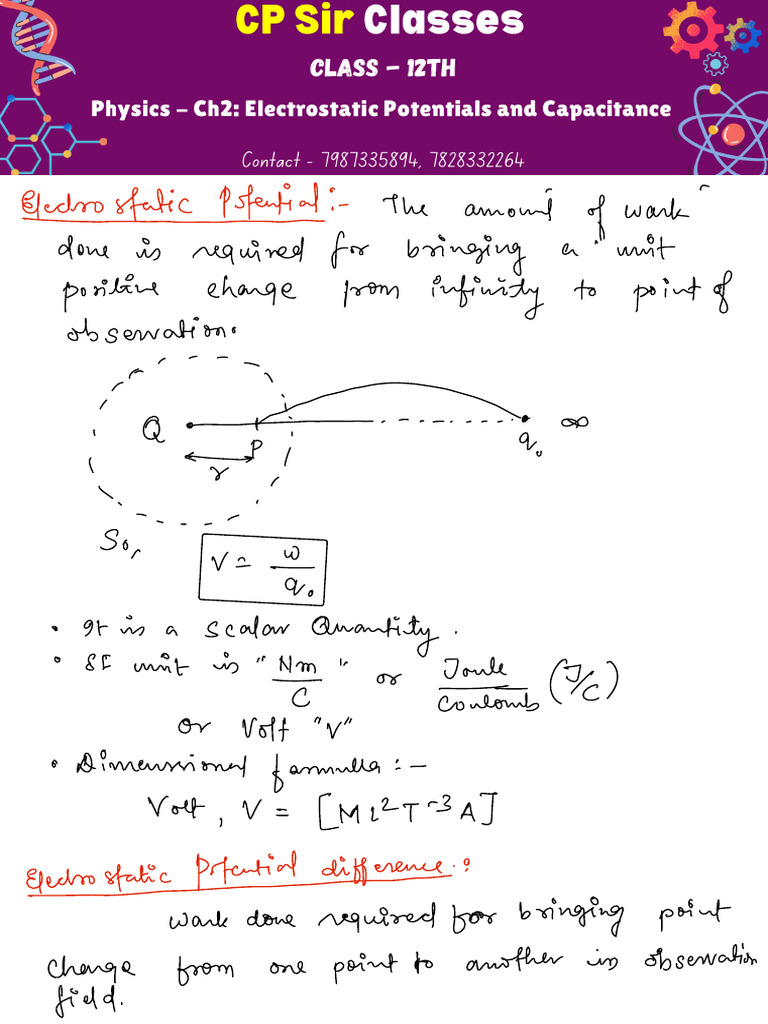 CP Sir Classes
CLASS - 12TH
Physics - Ch2: Electrostatic Potentials and Capacitance
Contact - 7987335894, 7828332264
Electrostatic Potential :- The amount of work
done is required for bringing a "unit
positive charge from infinity to point of
observation.
Q P q₀ ∞
r
So,
V = w/q₀
• It is a scalar Quantity.
• SI unit is "Nm/C" or Joule/Coulomb (J/C)
or Volt "V"
• Dimensional formulla :-
Volt, V = [ML²T⁻³A]
Electrostatic Potential difference :
Work done required for bringing point
charge from one point to another in observation
field.